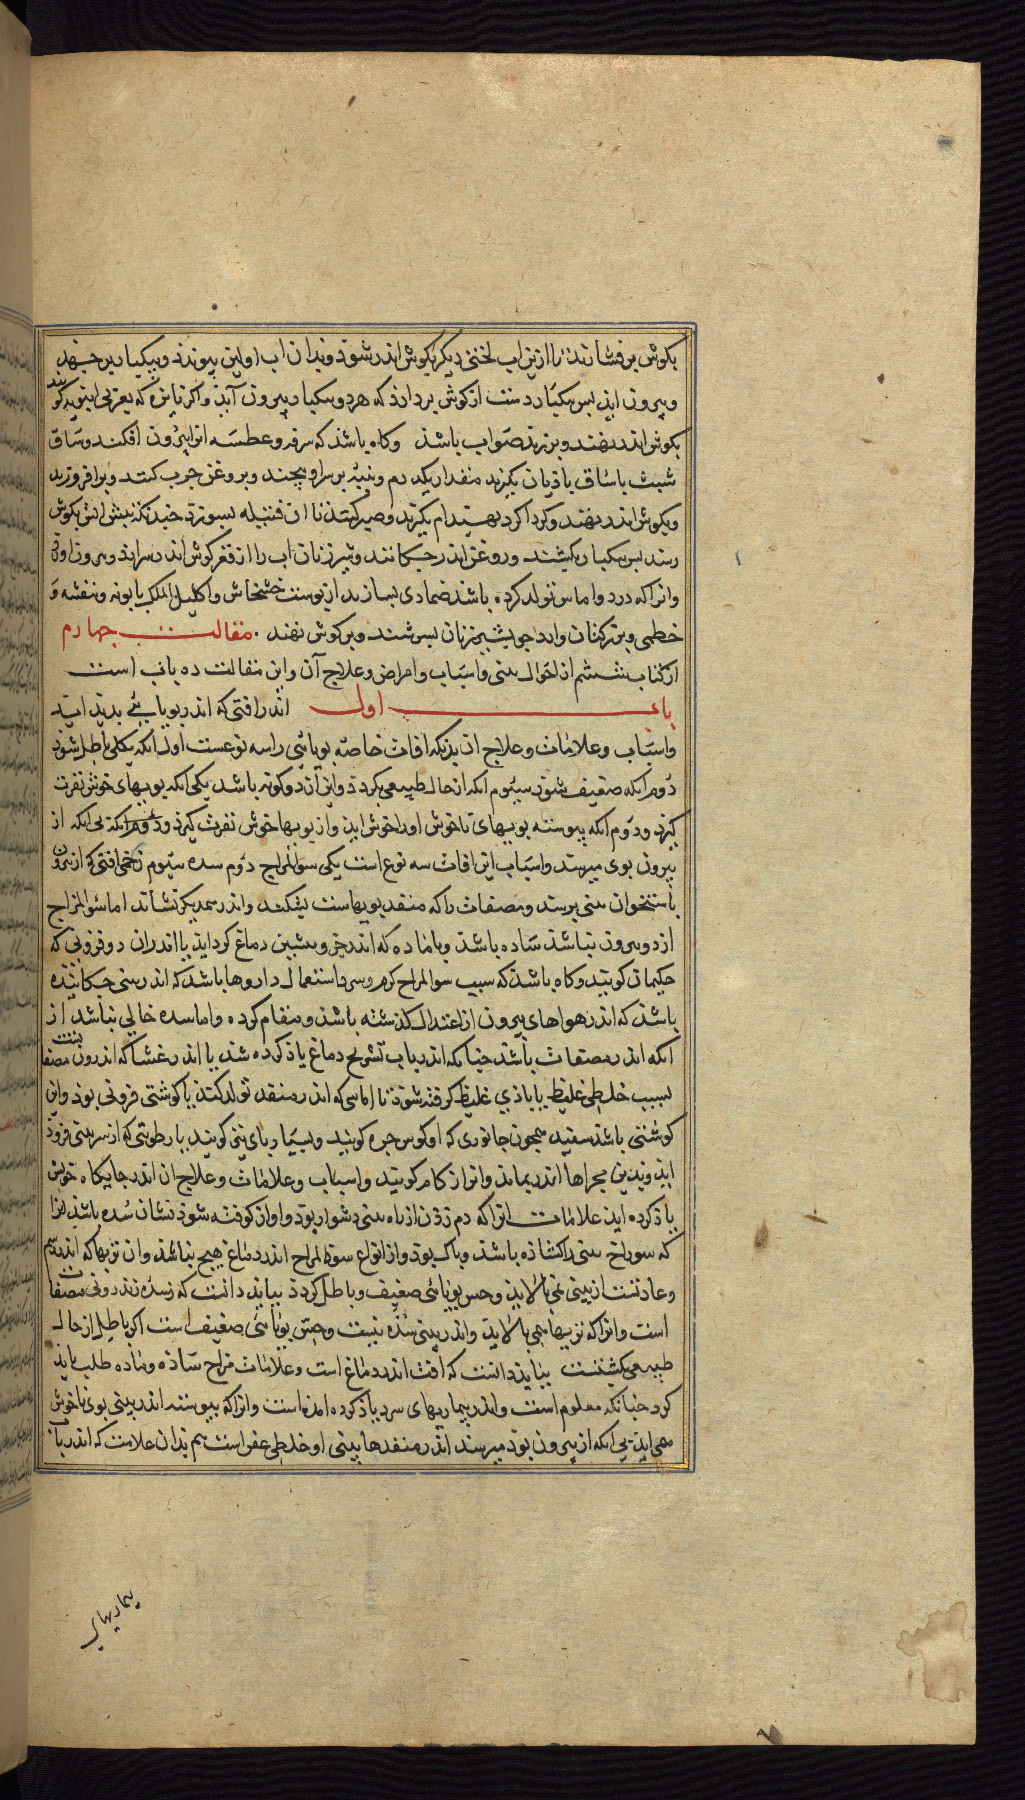 بگوش برفشارند تا ازین اب لختی دیگر بگوش اندر شود و بدان اب اولین پیوندد و بیکبار برجهد
و بیرون اید پس بیکبار دست از گوش بردارد که هر دو بیکبار بیرون آید و اکر نایژه که بعربی انبوبه گویند
بگوش اندر نهند و بمزند صواب باشد و کاه باشد که سرفه و عطسه انرا بیرون افکند و ساق
شبث با ساق بادیان بگیرند مقدار یکدرم و پنبه بر سر او پیچند و بروغن چرب کنند و برافروزند
و بگوش اندر نهند و کرداکرد بهندام بگیرند و صبر کنند تا ان فتیله بسوزد چندانکه تبش اتش بگوش
رسد پس بیکبار بکشند و روغن اندر چکانند و شیر زنان اب را از قعر گوش اندر رساند و بیرون اورد
و انرا که درد و اماس تولد کرده باشد ضمادی بسازند از پوست خشخاش و اکلیل الملک و بابونه و بنفشه و
خطمی و بزر کتان و ارد جو بشیر زنان بسرشند و بر کوش نهند . مقالت چهارم
از کتاب ششم از احوال بینی و اسباب و امراض و علاج آن و این مقالت ده باب است
باب اول اندر افتی که اندر بویایی پدید اید
و اسباب و علامات و علاج ان بدانکه افات خاصه بویائی را سه نوعست اول انکه بکلی باطل شود
دوم انکه ضعیف شود سیوم انکه از حال طبیعی بکردد و این آن دو کونه باشد یکی انکه بویهای خوش نفرت
گیرد و دوم انکه پیوسته بویهای ناخوش او را خوش اید و از بویها خوش نفرت گیرد و دوم انکه بی انکه از
بیرون بوی میرسد و اسباب این افات سه نوع است یکی سوالمزاج دوم سده سیوم زخمی افتی که از بیرون
باستخوان بینی برسد و مصفات را که منفذ بویهاست بشکند و اندر یکدیکر نشاند اما سوالمزاج
از دو بیرون نباشد ساده باشد و یا ماده که اندر جزو پیشین دماغ کرد اید یا اندران دو فزونی که
حکیمان کویند و کاه باشد که سبب سوالمزاج کرم و سرد استعمال داروها باشد که اندر بینی چکانیده
باشد که اندر هواهای بیرون از اعتدال گذشته باشد و مقام کرده و اما سده خالی نباشد از
انکه اندر مصفات باشد چنانکه اندر باب تشریح دماغ یاد کرده شد یا اندر غشا که اندرون بینی مصفا
بسبب خلطی غلیظ یا بادی غلیظ کرفته شود تا اماسی که اندر منفذ تولد کند یا کوشتی فزونی بود و این
کوشتی باشد سفید همچون جانوری که او کوس جره کویند و بسیار پای نیز کویند یا رطوبتی که از سر بینی فرود
اید و بدین مجراها اندر بماند و انرا زکام کویند و اسباب و علامات و علاج ان اندر جایکاه خویش
یاذ کرده اید علامات انرا که دم زدن از راه بینی دشوار بود و اواز کوفته شود نشان سده باشد انرا
که سوراخ بینی را کشاده باشد و پاک بود و از انواع سوالمزاج اندر دماغ هیچ نباشد و ان تریها که اندر رسم
و عادتست از بینی نمی پالاید و حس بویائی ضعیف و باطل کردد بباید دانست که سده اندرونی مصفات
است و انرا که تریها همی پالاید و اندر بینی سده نیست و حس بویائی ضعیف است اکر باطل از حال
طبیعی بکشتست بباید دانست که افت اندر دماغ است و علامات مزاج ساده و ماده طلب باید
کرد چنانکه معلوم است و اندر بیماریهای سر یاد کرده امده است و انرا که پیوسته اندر بینی بوی ناخوش
همی اید بی انکه از بیرون بود میرسد اندر منفذها بینی او خلطی عفن است هم بدان علامت که اندر باب
بیماریهای